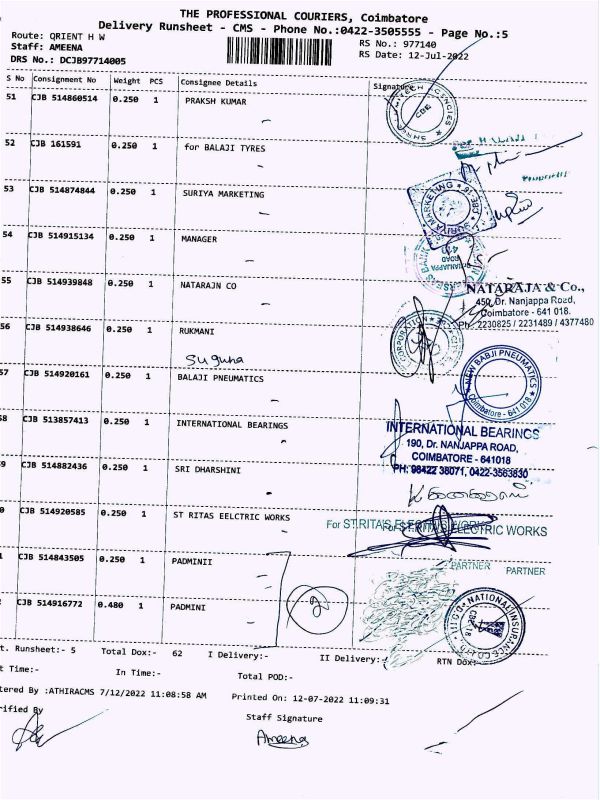 THE PROFESSIONAL COURIERS, Coimbatore
Delivery Runsheet - CMS - Phone No.:0422-3505555 - Page No.:5
Route: QRIENT H W
RS No.: 977140
Staff: AMEENA
RS Date: 12-Jul-2022
DRS No.: DCJB97714005
S No Consignment No Weight PCS Consignee Details Signature
51 CJB 514860514 0.250 1 PRAKSH KUMAR
52 CJB 161591 0.250 1 for BALAJI TYRES
53 CJB 514874844 0.250 1 SURIYA MARKETING
SURIYA MARKETING
54 CJB 514915134 0.250 1 MANAGER
55 CJB 514939848 0.250 1 NATARAJN CO
NATARAJA & Co.,
450, Dr. Nanjappa Road,
Coimbatore - 641 018.
Ph: 2230825 / 2231489 / 4377480
56 CJB 514938646 0.250 1 RUKMANI
CORPORATION
Suguna
57 CJB 514920161 0.250 1 BALAJI PNEUMATICS
NEW BABJI PNEUMATICS
Coimbatore - 641 018
58 CJB 513857413 0.250 1 INTERNATIONAL BEARINGS
INTERNATIONAL BEARINGS
190, Dr. NANJAPPA ROAD,
COIMBATORE - 641018
PH: 98422 38071, 0422-3563830
9 CJB 514882436 0.250 1 SRI DHARSHINI
0 CJB 514920585 0.250 1 ST RITAS EELCTRIC WORKS
For ST.RITA'S ELECTRIC WORKS
PARTNER PARTNER
1 CJB 514843505 0.250 1 PADMINII
2 CJB 514916772 0.480 1 PADMINI
NATIONAL INSURANCE CO. LTD.
t. Runsheet:- 5 Total Dox:- 62 I Delivery:- II Delivery:- RTN Dox:-
t Time:- In Time:- Total POD:-
tered By :ATHIRACMS 7/12/2022 11:08:58 AM Printed On: 12-07-2022 11:09:31
rified By
Staff Signature
Ameena